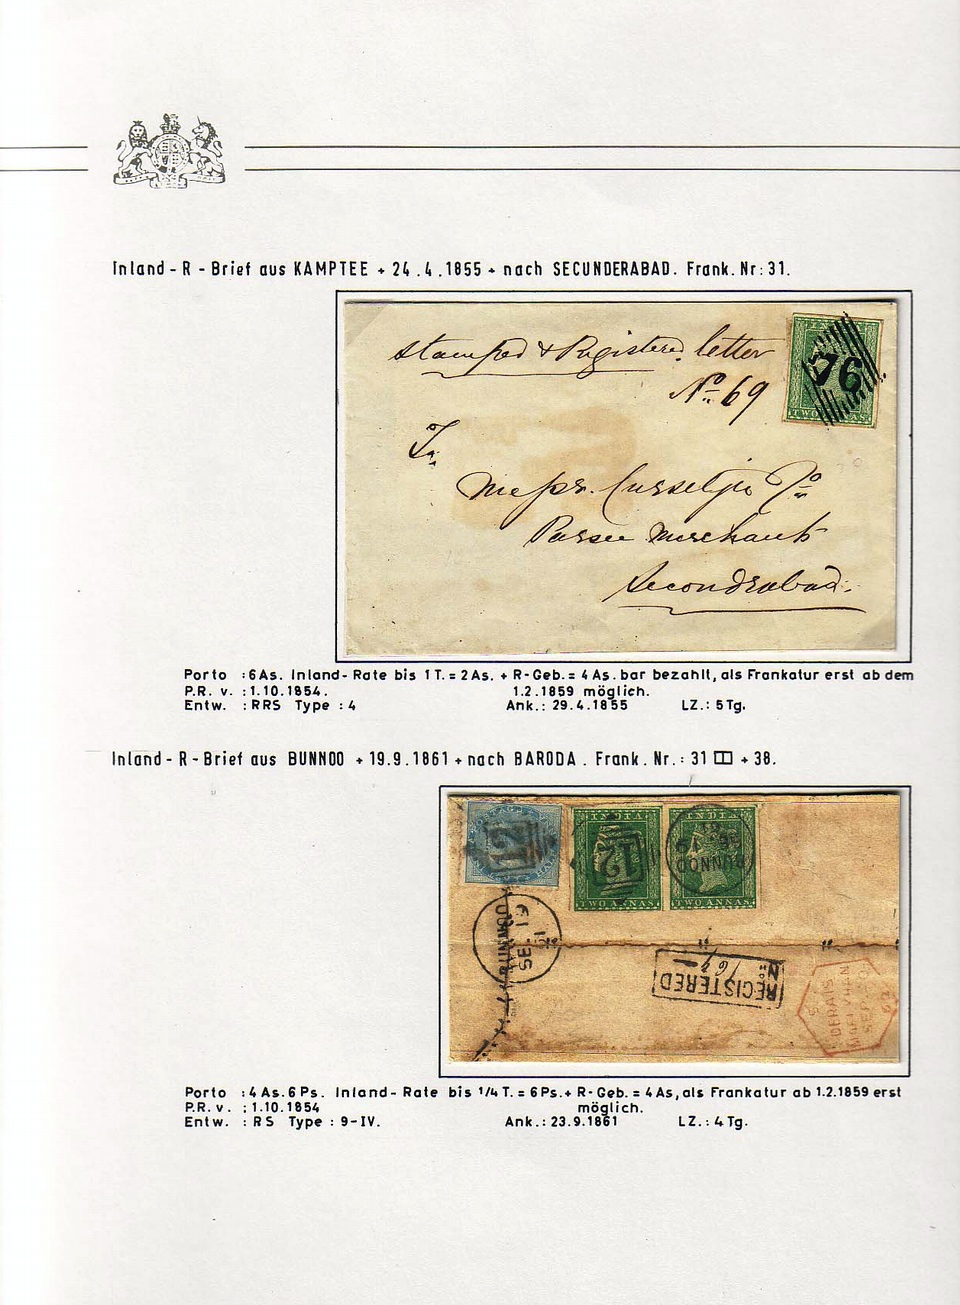 Inland - R - Brief aus KAMPTEE + 24.4.1855 + nach SECUNDERABAD. Frank. Nr: 31.
Stamped & Registered letter
No 69
INDIA
76
TWO ANNAS
To
Messrs. Cursetjee Co
Parsee Merchants
Secondrabad.
Porto : 6 As. Inland-Rate bis 1 T. = 2 As. + R-Geb. = 4 As. bar bezahlt, als Frankatur erst ab dem
P.R. v. : 1.10.1854. 1.2.1859 möglich.
Entw. : RRS Type : 4 Ank.: 29.4.1855 LZ.: 5 Tg.
Inland - R - Brief aus BUNNOO + 19.9.1861 + nach BARODA. Frank. Nr.: 31 + 38.
12
INDIA
12
TWO ANNAS
INDIA
BUNNOO
SE 19
TWO ANNAS
BUNNOO
SE 19
61
REGISTERED
No
Porto : 4 As. 6 Ps. Inland-Rate bis 1/4 T. = 6 Ps. + R-Geb. = 4 As, als Frankatur ab 1.2.1859 erst
P.R. v. : 1.10.1854 möglich.
Entw. : RS Type : 9-IV. Ank.: 23.9.1861 LZ.: 4 Tg.